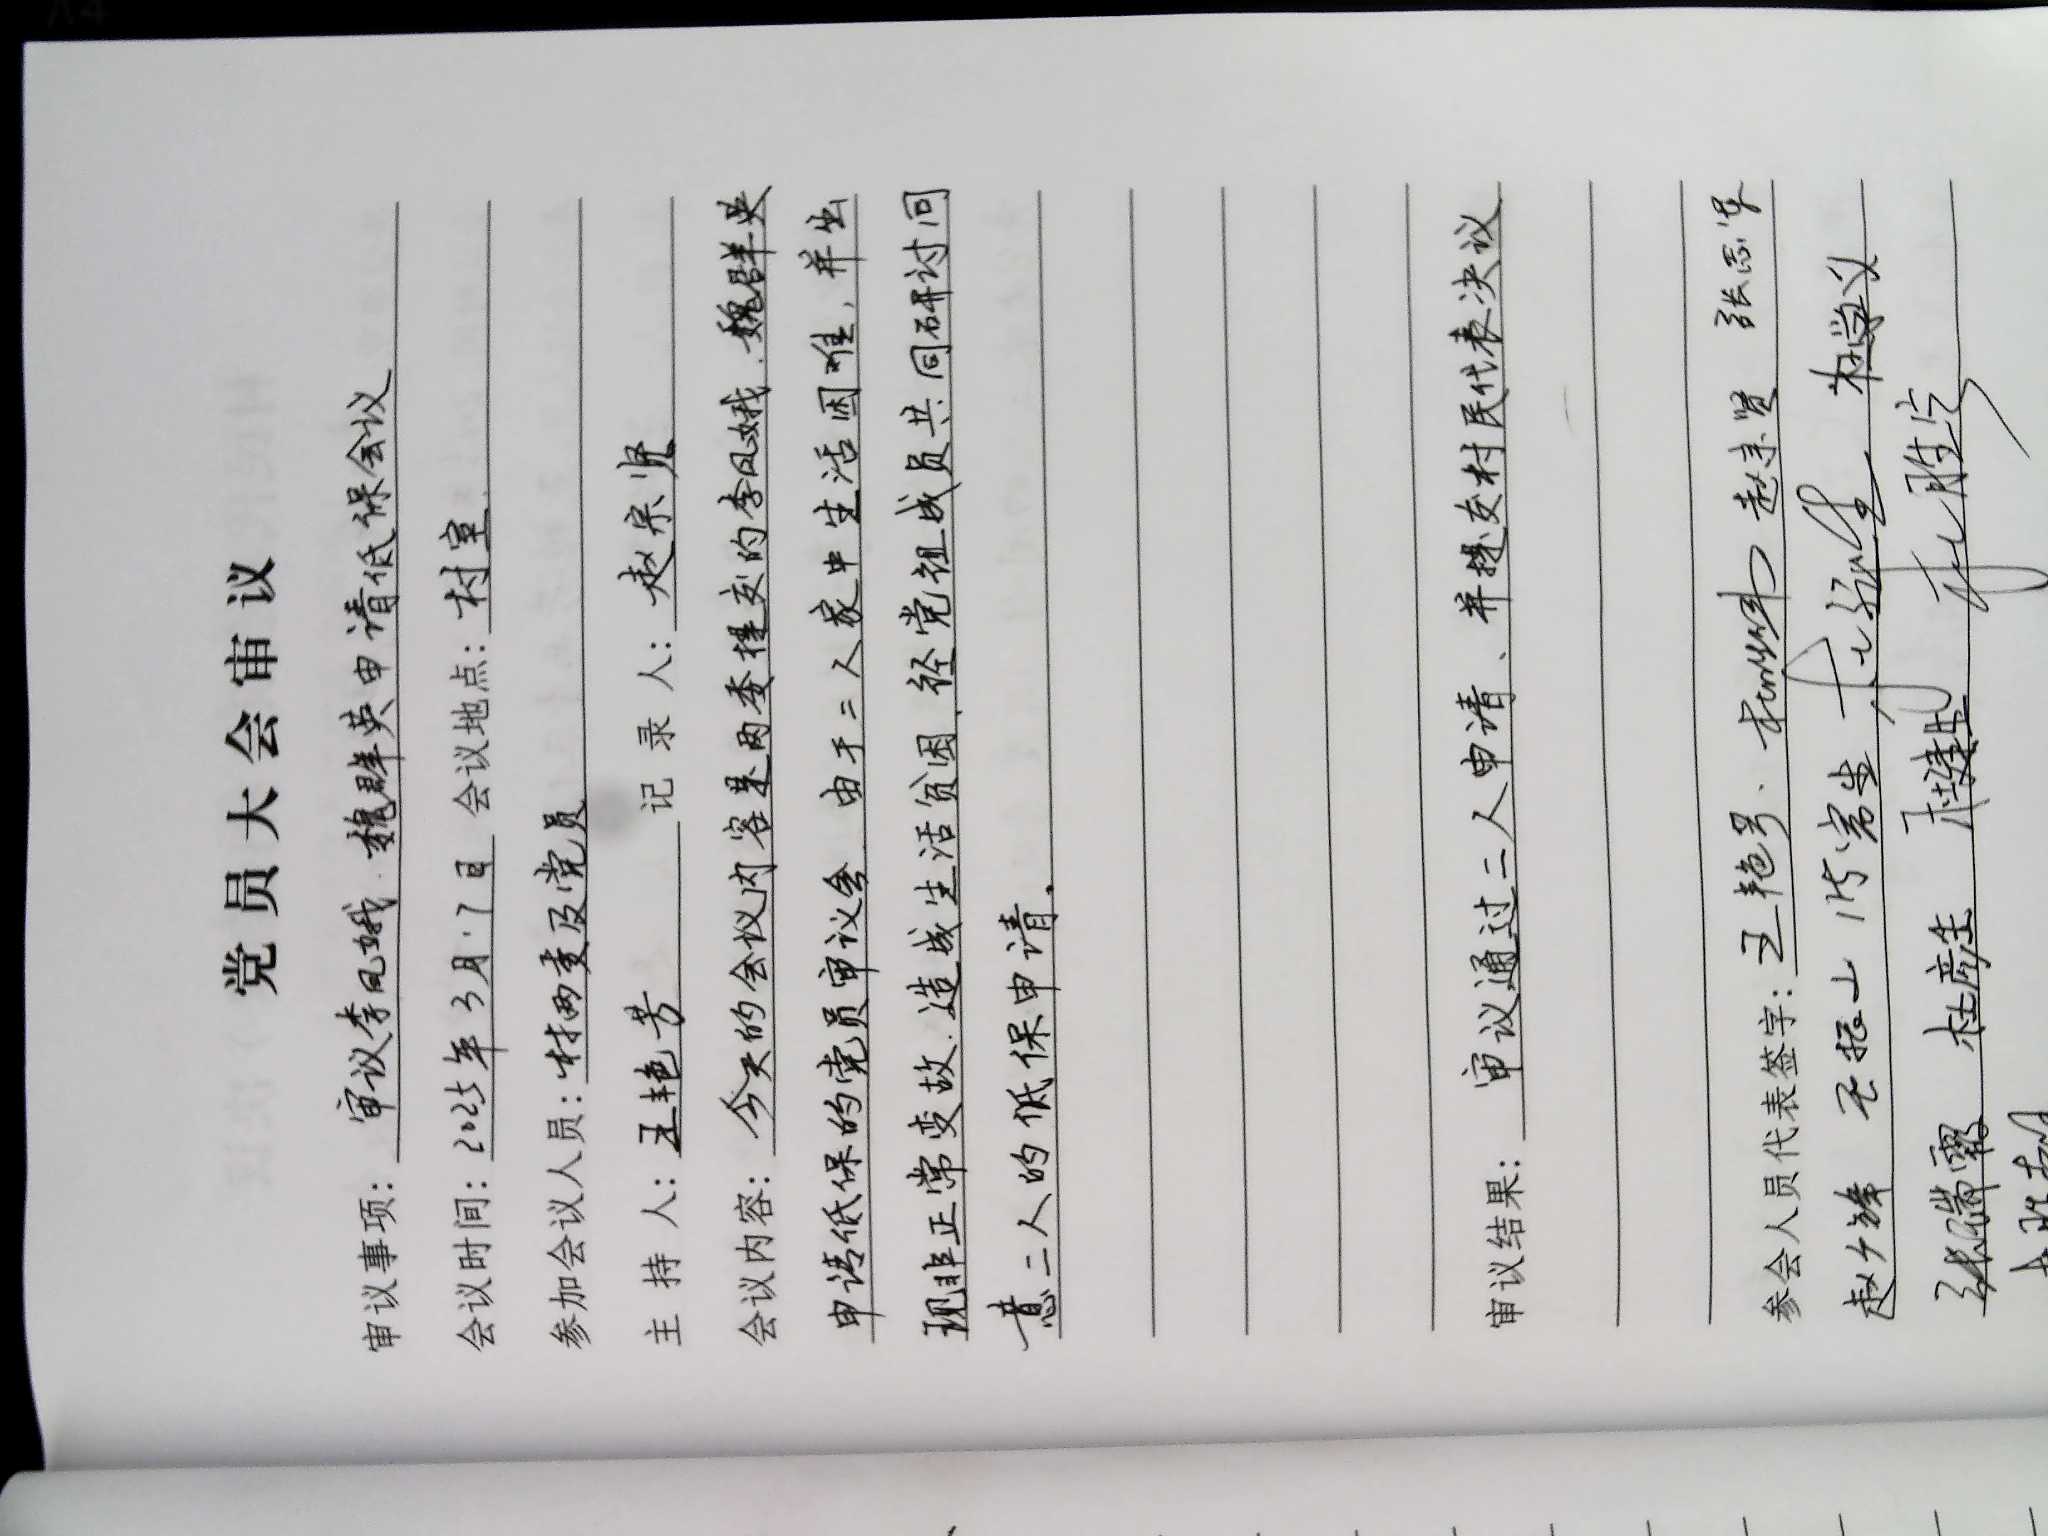 党员大会审议
审议事项: 审议李凤娥、魏群英申请低保会议
会议时间: 2025年3月7日 会议地点: 村室
参加会议人员: 村两委及党员
主 持 人: 王艳芳 记 录 人: 赵宗贤
会议内容: 今天的会议内容是两委提交的李凤娥、魏群英
申请低保的党员审议会,由于二人家中生活困难,并出
现非正常变故,造成生活贫困,经党组成员共同研讨同
意二人的低保申请.
审议结果: 审议通过二人申请、并提交村民代表决议
参会人员代表签字: 王艳芳、 赵宗贤 张志军
赵少锋 杜学义
张瑞霞 杜彦生